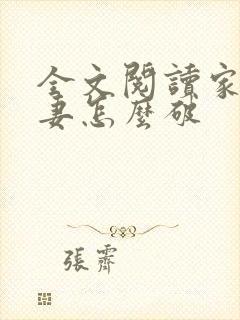 全文閱讀家
妻怎麼破
張霽